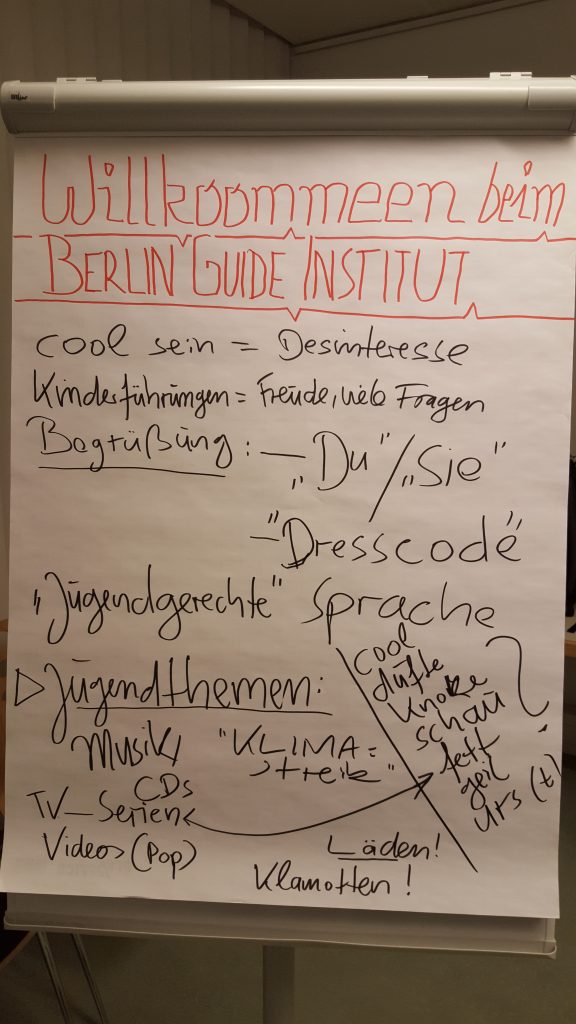 Willkoommeen beim
BERLIN GUIDE INSTITUT
cool sein = Desinteresse
Kinderführungen = Freude, viele Fragen
Begrüßung: – „Du"/„Sie"
– "Dresscode"
„Jugendgerechte" Sprache
cool
dufte
knorke
schau
fett
geil
urs(t)
?
▷ Jugendthemen:
Musik
CDs
"KLIMA=
streik"
TV–Serien
Videos (Pop)
Läden!
Klamotten!